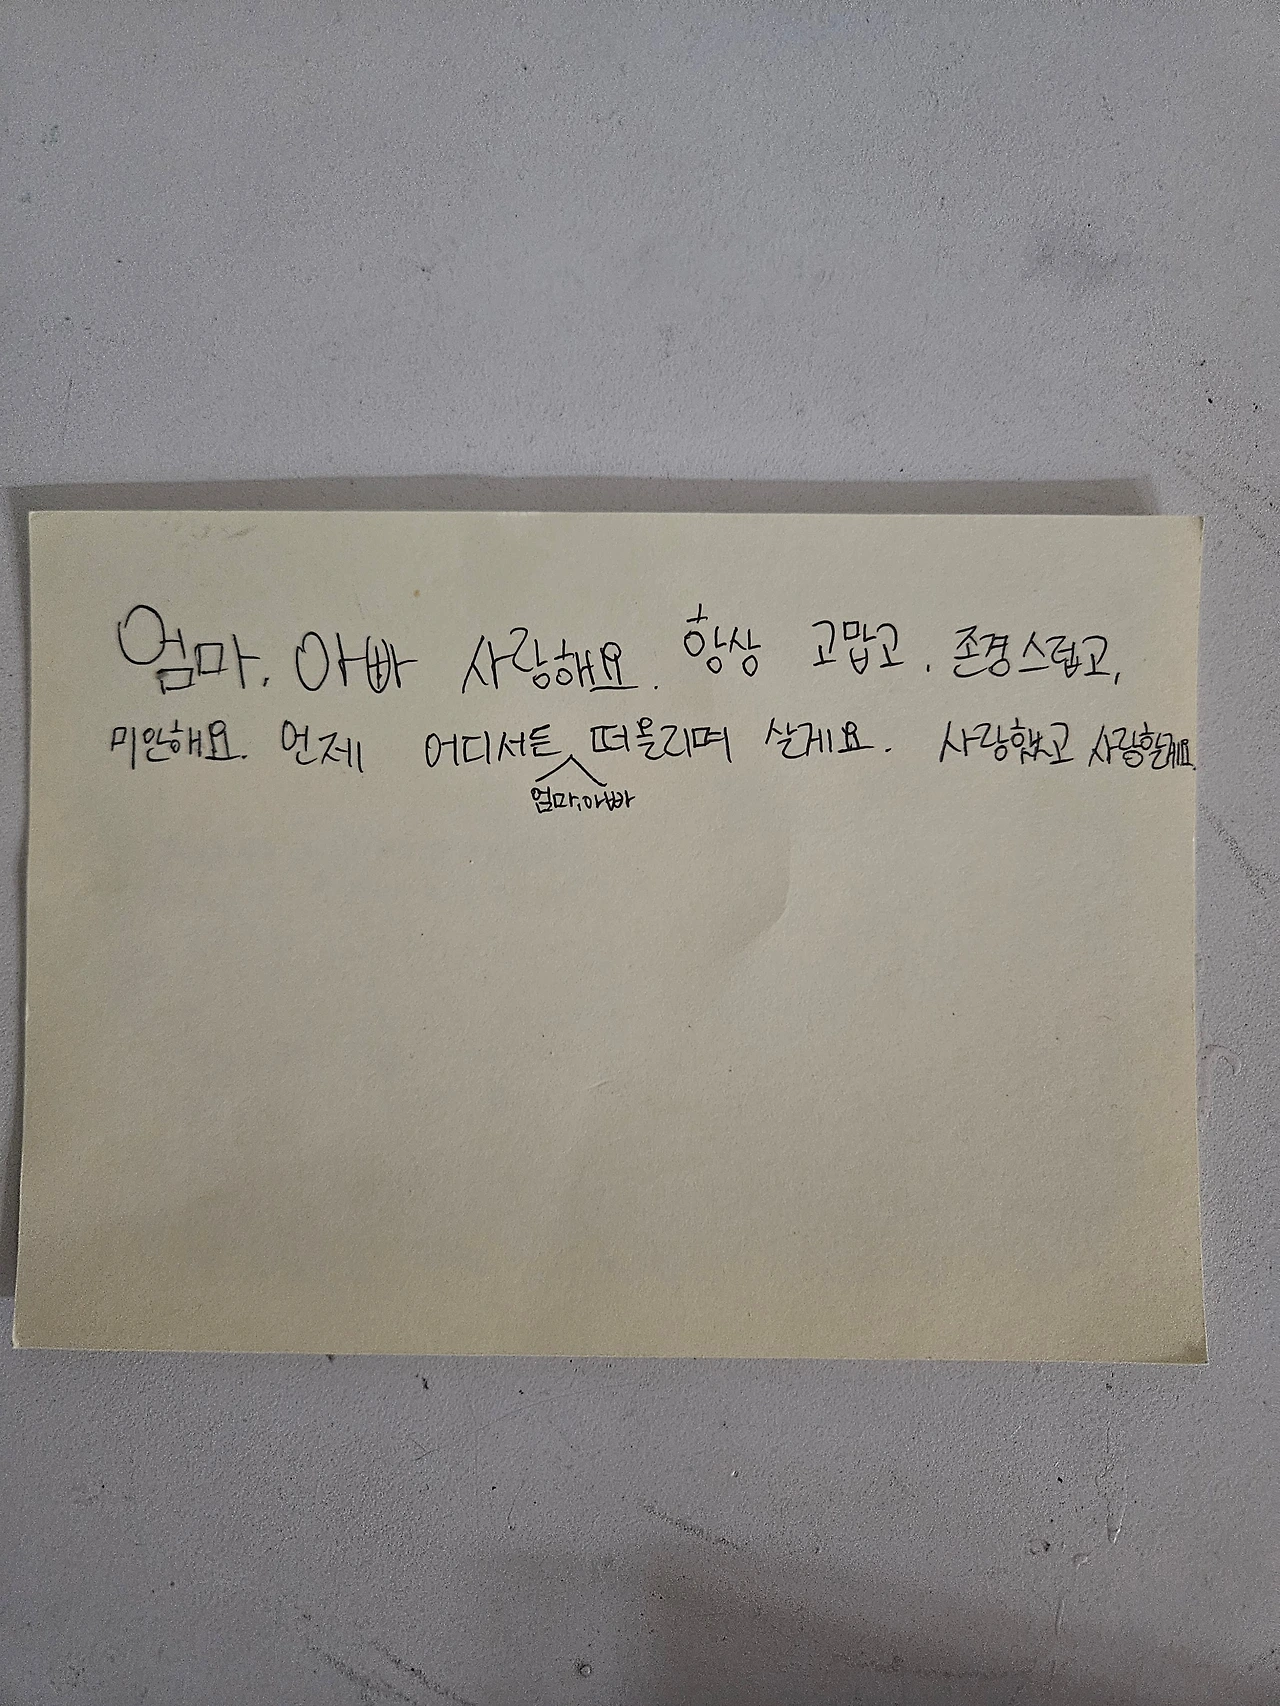 엄마, 아빠 사랑해요. 항상 고맙고, 존경스럽고,
미안해요. 언제 어디서든 떠올리며 살게요. 사랑했고 사랑할게요.
엄마, 아빠